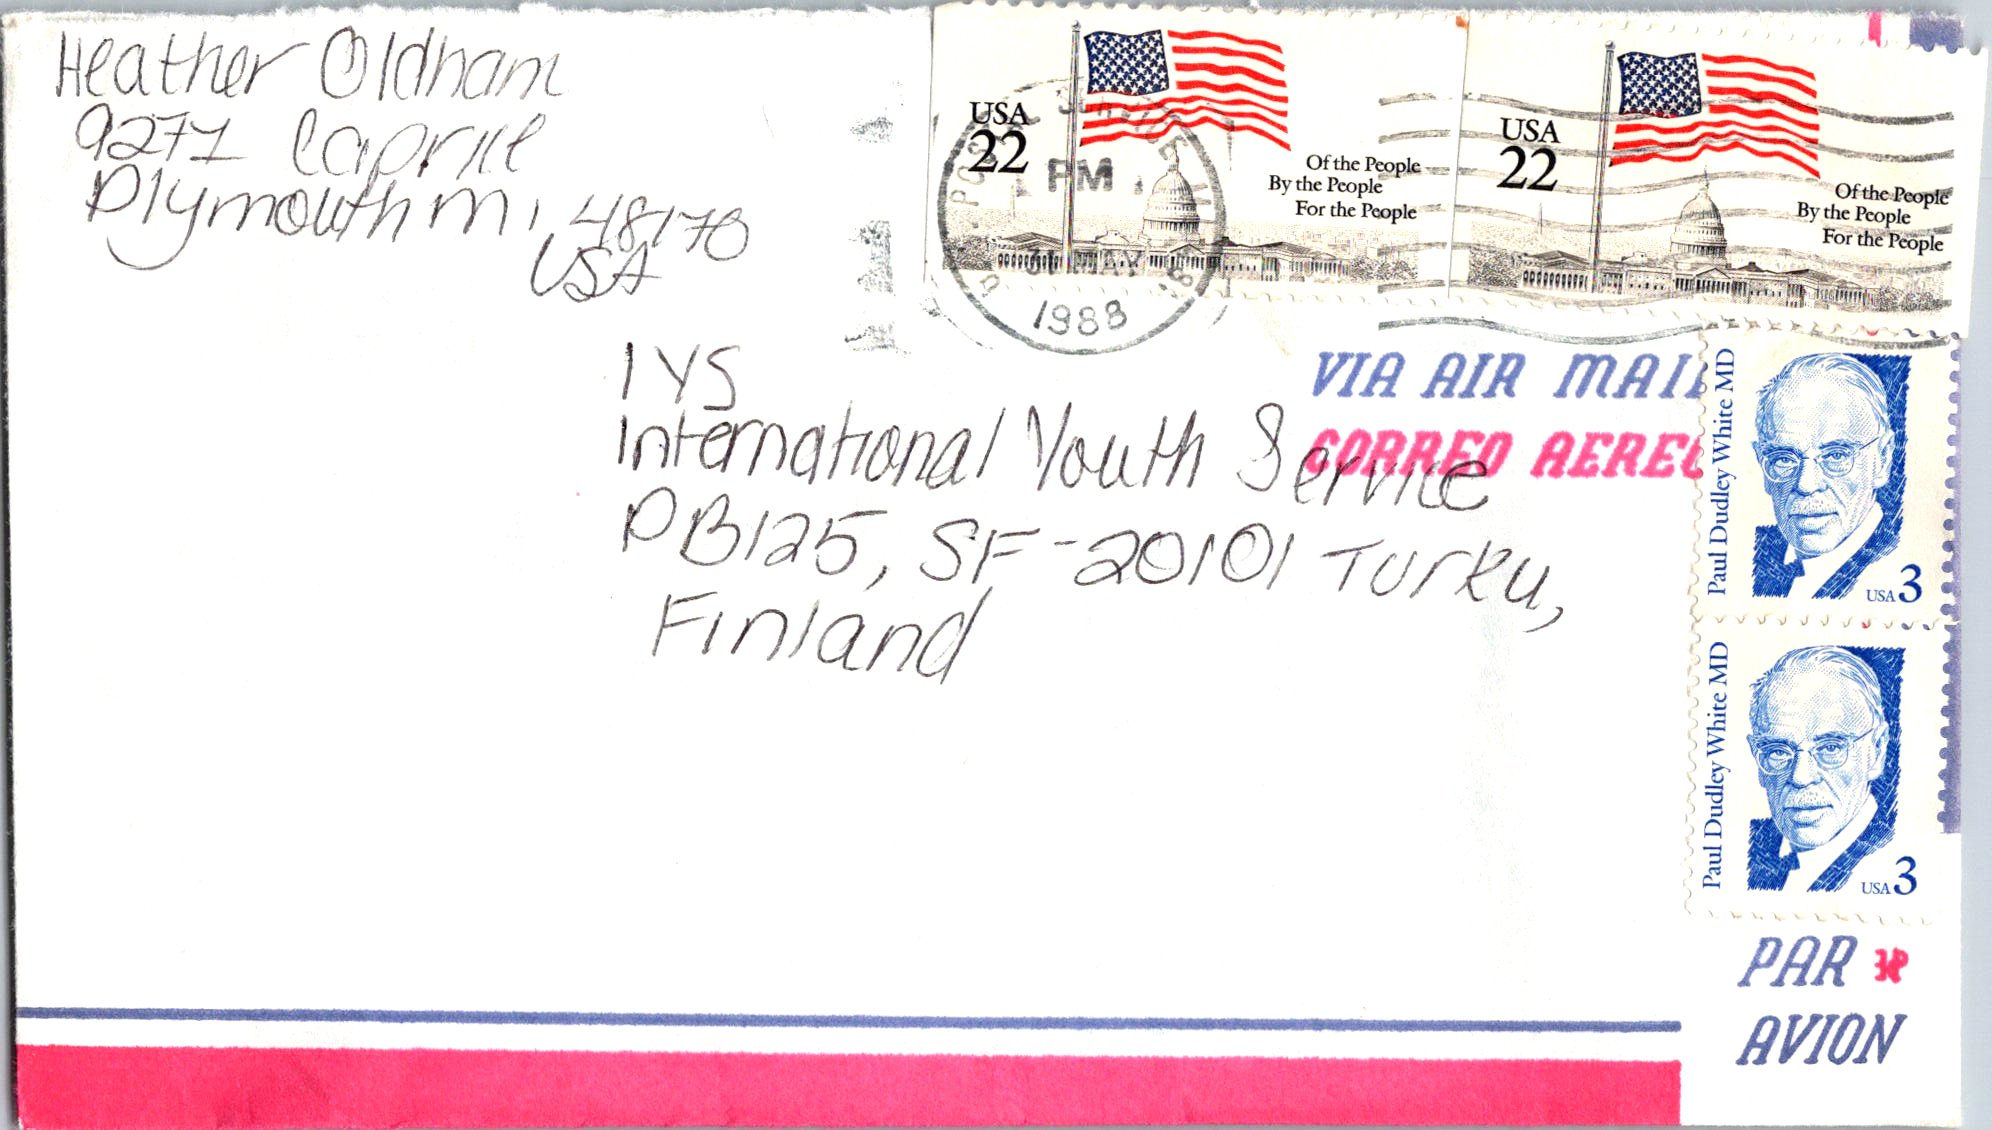 Heather Oldham
9271 Caprice
Plymouth Mi, 48170
USA
USA
22
Of the People
By the People
For the People
USA
22
Of the People
By the People
For the People
PM
31 MAY
1988
IYS
International Youth Service
PB125, SF-20101 Turku,
Finland
VIA AIR MAIL
CORREO AEREO
Paul Dudley White MD
USA 3
Paul Dudley White MD
USA 3
PAR
AVION